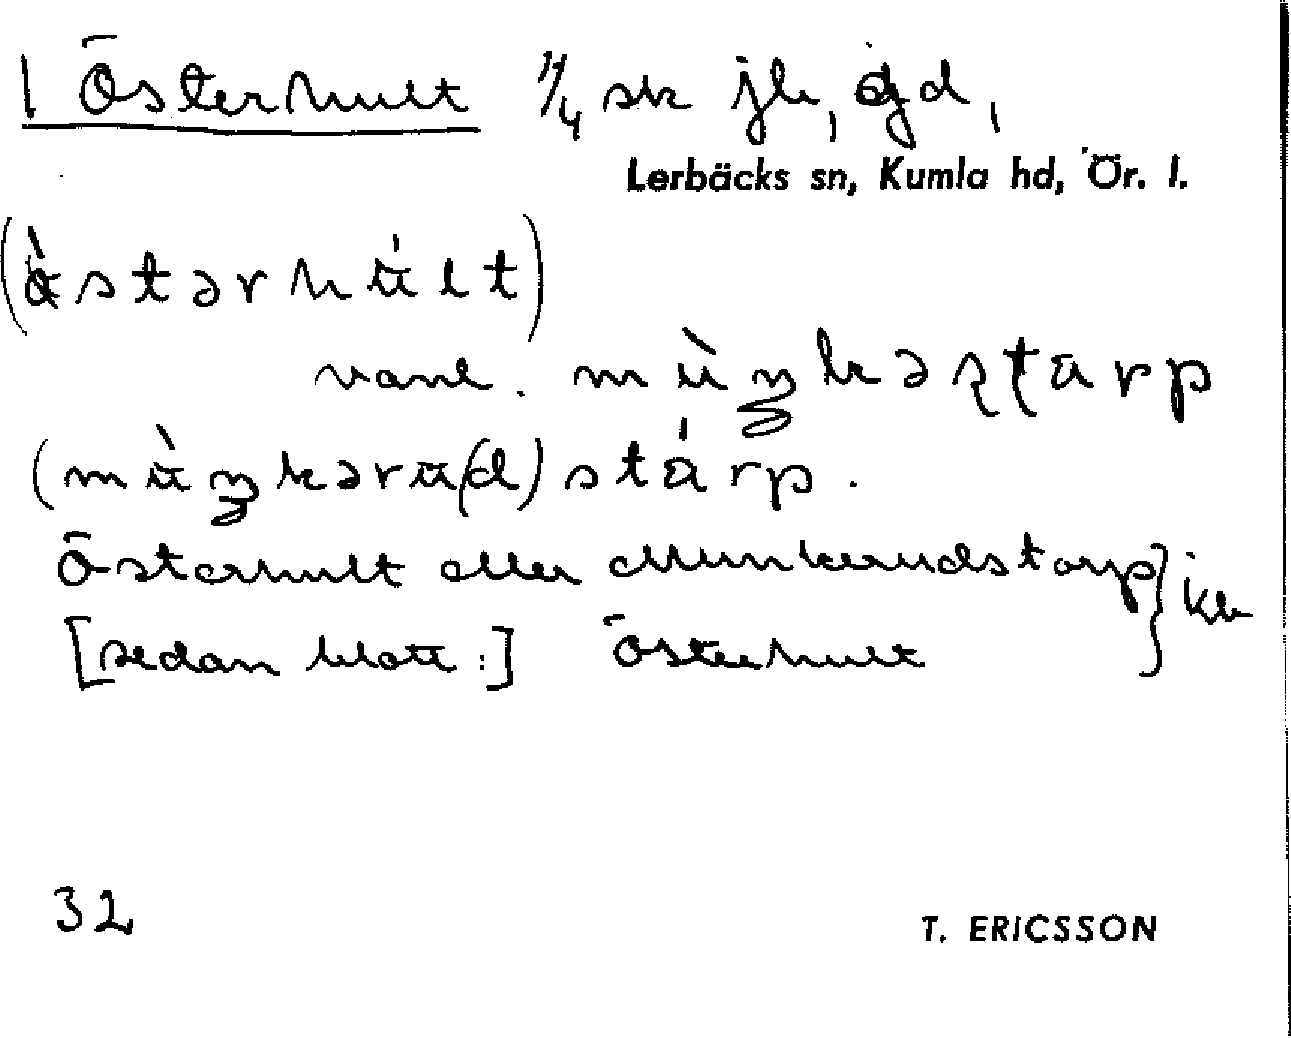 1 Österhult ¼ sk jb, gd,
Lerbäcks sn, Kumla hd, Ör. l.
(ɵ̀stərhúlt)
vanl. mùŋkəʂʈarp
(mùŋkəru(d)stárp.
Österhult eller Munkerudstorp } kb
[sedan blott:] Österhult
32
T. ERICSSON